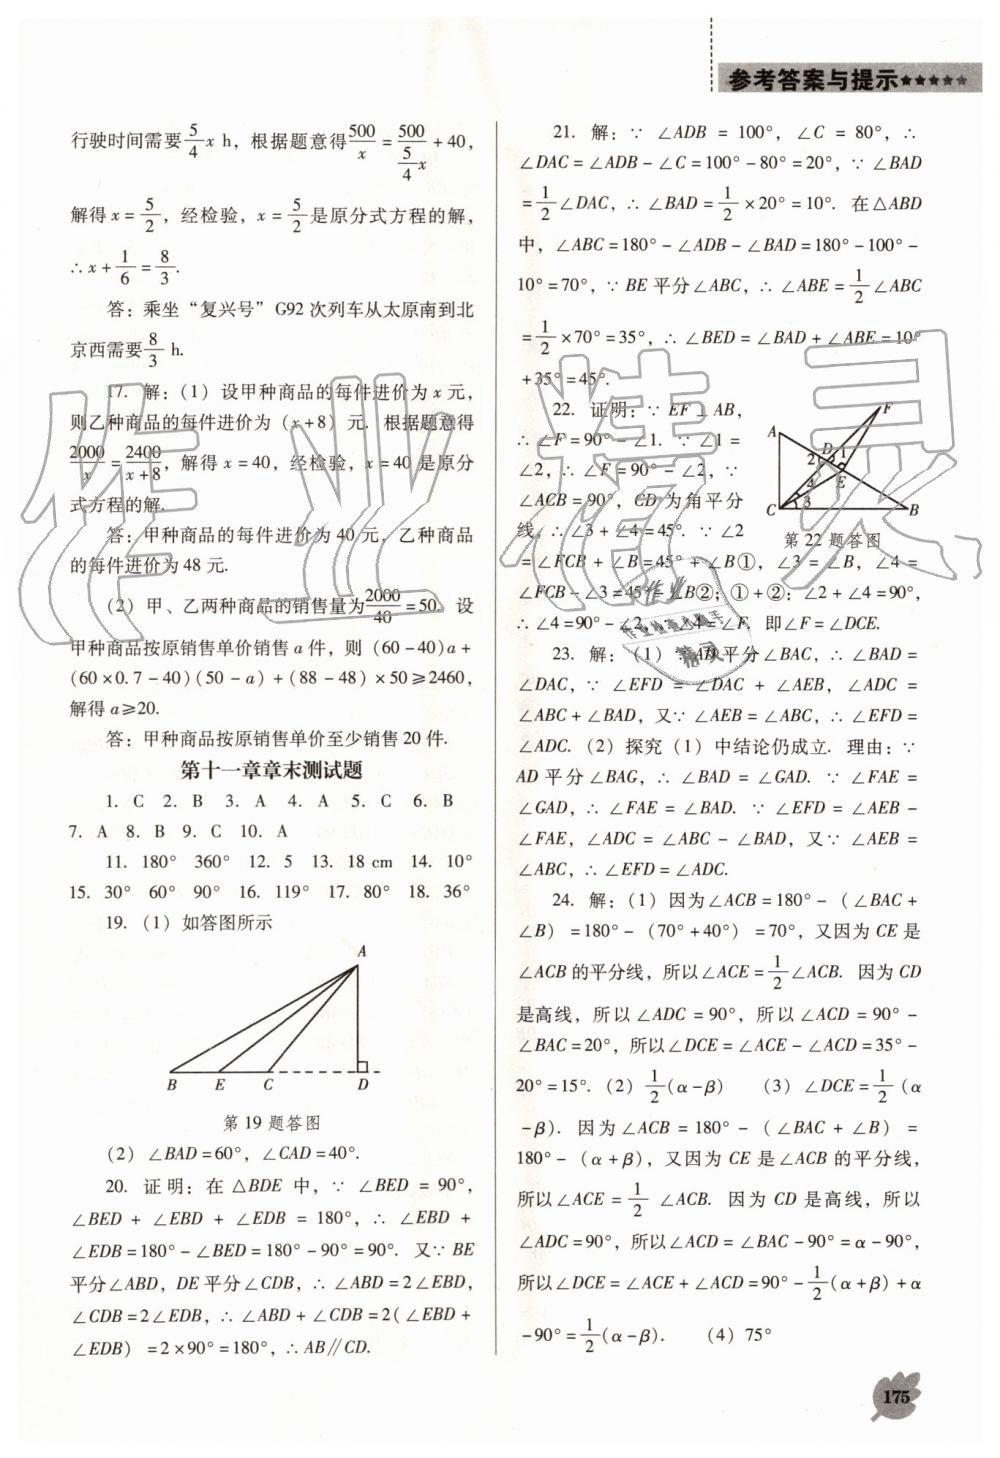 参考答案与提示★★★★★
行驶时间需要5/4 x h，根据题意得500/x=500/(5/4 x)+40，
解得 x=5/2，经检验，x=5/2是原分式方程的解，
∴x+1/6=8/3.
答：乘坐“复兴号”G92 次列车从太原南到北
京西需要8/3 h.
17. 解：(1) 设甲种商品的每件进价为 x 元，
则乙种商品的每件进价为（x+8）元. 根据题意得
2000/x=2400/(x+8)，解得 x=40，经检验，x=40 是原分
式方程的解.
答：甲种商品的每件进价为 40 元，乙种商品
的每件进价为 48 元.
(2) 甲、乙两种商品的销售量为2000/40=50. 设
甲种商品按原销售单价销售 a 件，则 (60-40)a+
(60×0.7-40)(50-a)+(88-48)×50≥2460，
解得 a≥20.
答：甲种商品按原销售单价至少销售 20 件.
第十一章章末测试题
1. C 2. B 3. A 4. A 5. C 6. B
7. A 8. B 9. C 10. A
11. 180° 360° 12. 5 13. 18 cm 14. 10°
15. 30° 60° 90° 16. 119° 17. 80° 18. 36°
19. (1) 如答图所示
A
B E C D
第 19 题答图
(2) ∠BAD=60°，∠CAD=40°.
20. 证明：在△BDE 中，∵ ∠BED = 90°，
∠BED + ∠EBD + ∠EDB = 180°，∴ ∠EBD +
∠EDB=180°-∠BED=180°-90°=90°. 又∵ BE
平分∠ABD，DE 平分∠CDB，∴ ∠ABD=2∠EBD，
∠CDB=2∠EDB，∴ ∠ABD + ∠CDB=2(∠EBD+
∠EDB) =2×90°=180°，∴AB∥CD.
21. 解：∵ ∠ADB = 100°，∠C = 80°，∴
∠DAC=∠ADB-∠C=100°-80°=20°，∵∠BAD
=1/2∠DAC，∴ ∠BAD=1/2×20°=10°. 在△ABD
中，∠ABC=180°-∠ADB-∠BAD=180°-100°-
10°=70°，∵ BE 平分∠ABC，∴ ∠ABE=1/2∠ABC
=1/2×70°=35°，∴∠BED=∠BAD+∠ABE=10°
+35°=45°.
22. 证明：∵ EF⊥AB，
∴ ∠F=90°-∠1. ∵ ∠1=
∠2，∴ ∠F=90°-∠2，∵
∠ACB=90°，CD 为角平分
线，∴∠3+∠4=45°. ∵∠2
=∠FCB+∠B=45°+∠B①，∠3=∠B，∠4=
∠FCB-∠3=45°-∠B②；①+②：∠2+∠4=90°，
∴ ∠4=90°-∠2，∴∠4=∠F. 即∠F=∠DCE.
F
A
D
1
2
E
4
C
3
B
第 22 题答图
23. 解：(1) ∵AD平分∠BAC，∴∠BAD=
∠DAC，∵ ∠EFD = ∠DAC + ∠AEB，∠ADC =
∠ABC+∠BAD，又∵ ∠AEB=∠ABC，∴∠EFD=
∠ADC. (2) 探究（1）中结论仍成立. 理由：∵
AD 平分∠BAG，∴ ∠BAD = ∠GAD. ∵ ∠FAE =
∠GAD，∴ ∠FAE = ∠BAD. ∵ ∠EFD = ∠AEB -
∠FAE，∠ADC = ∠ABC - ∠BAD，又∵ ∠AEB =
∠ABC，∴ ∠EFD=∠ADC.
24. 解：(1) 因为∠ACB=180°-（∠BAC+
∠B）=180°-（70°+40°）=70°，又因为 CE 是
∠ACB 的平分线，所以∠ACE=1/2∠ACB. 因为 CD
是高线，所以∠ADC = 90°，所以∠ACD = 90° -
∠BAC=20°，所以∠DCE=∠ACE-∠ACD=35°-
20°=15°. (2) 1/2(α-β) (3) ∠DCE=1/2(α
-β). 因为∠ACB = 180° -（∠BAC + ∠B）=
180°-（α+β），又因为 CE 是∠ACB 的平分线，
所以∠ACE=1/2 ∠ACB. 因为 CD 是高线，所以
∠ADC=90°，所以∠ACD=∠BAC-90°=α-90°，
所以∠DCE=∠ACE+∠ACD=90°-1/2(α+β)+α
-90°=1/2(α-β). (4) 75°
175
作业精灵
作业
作业检查小助手
精灵